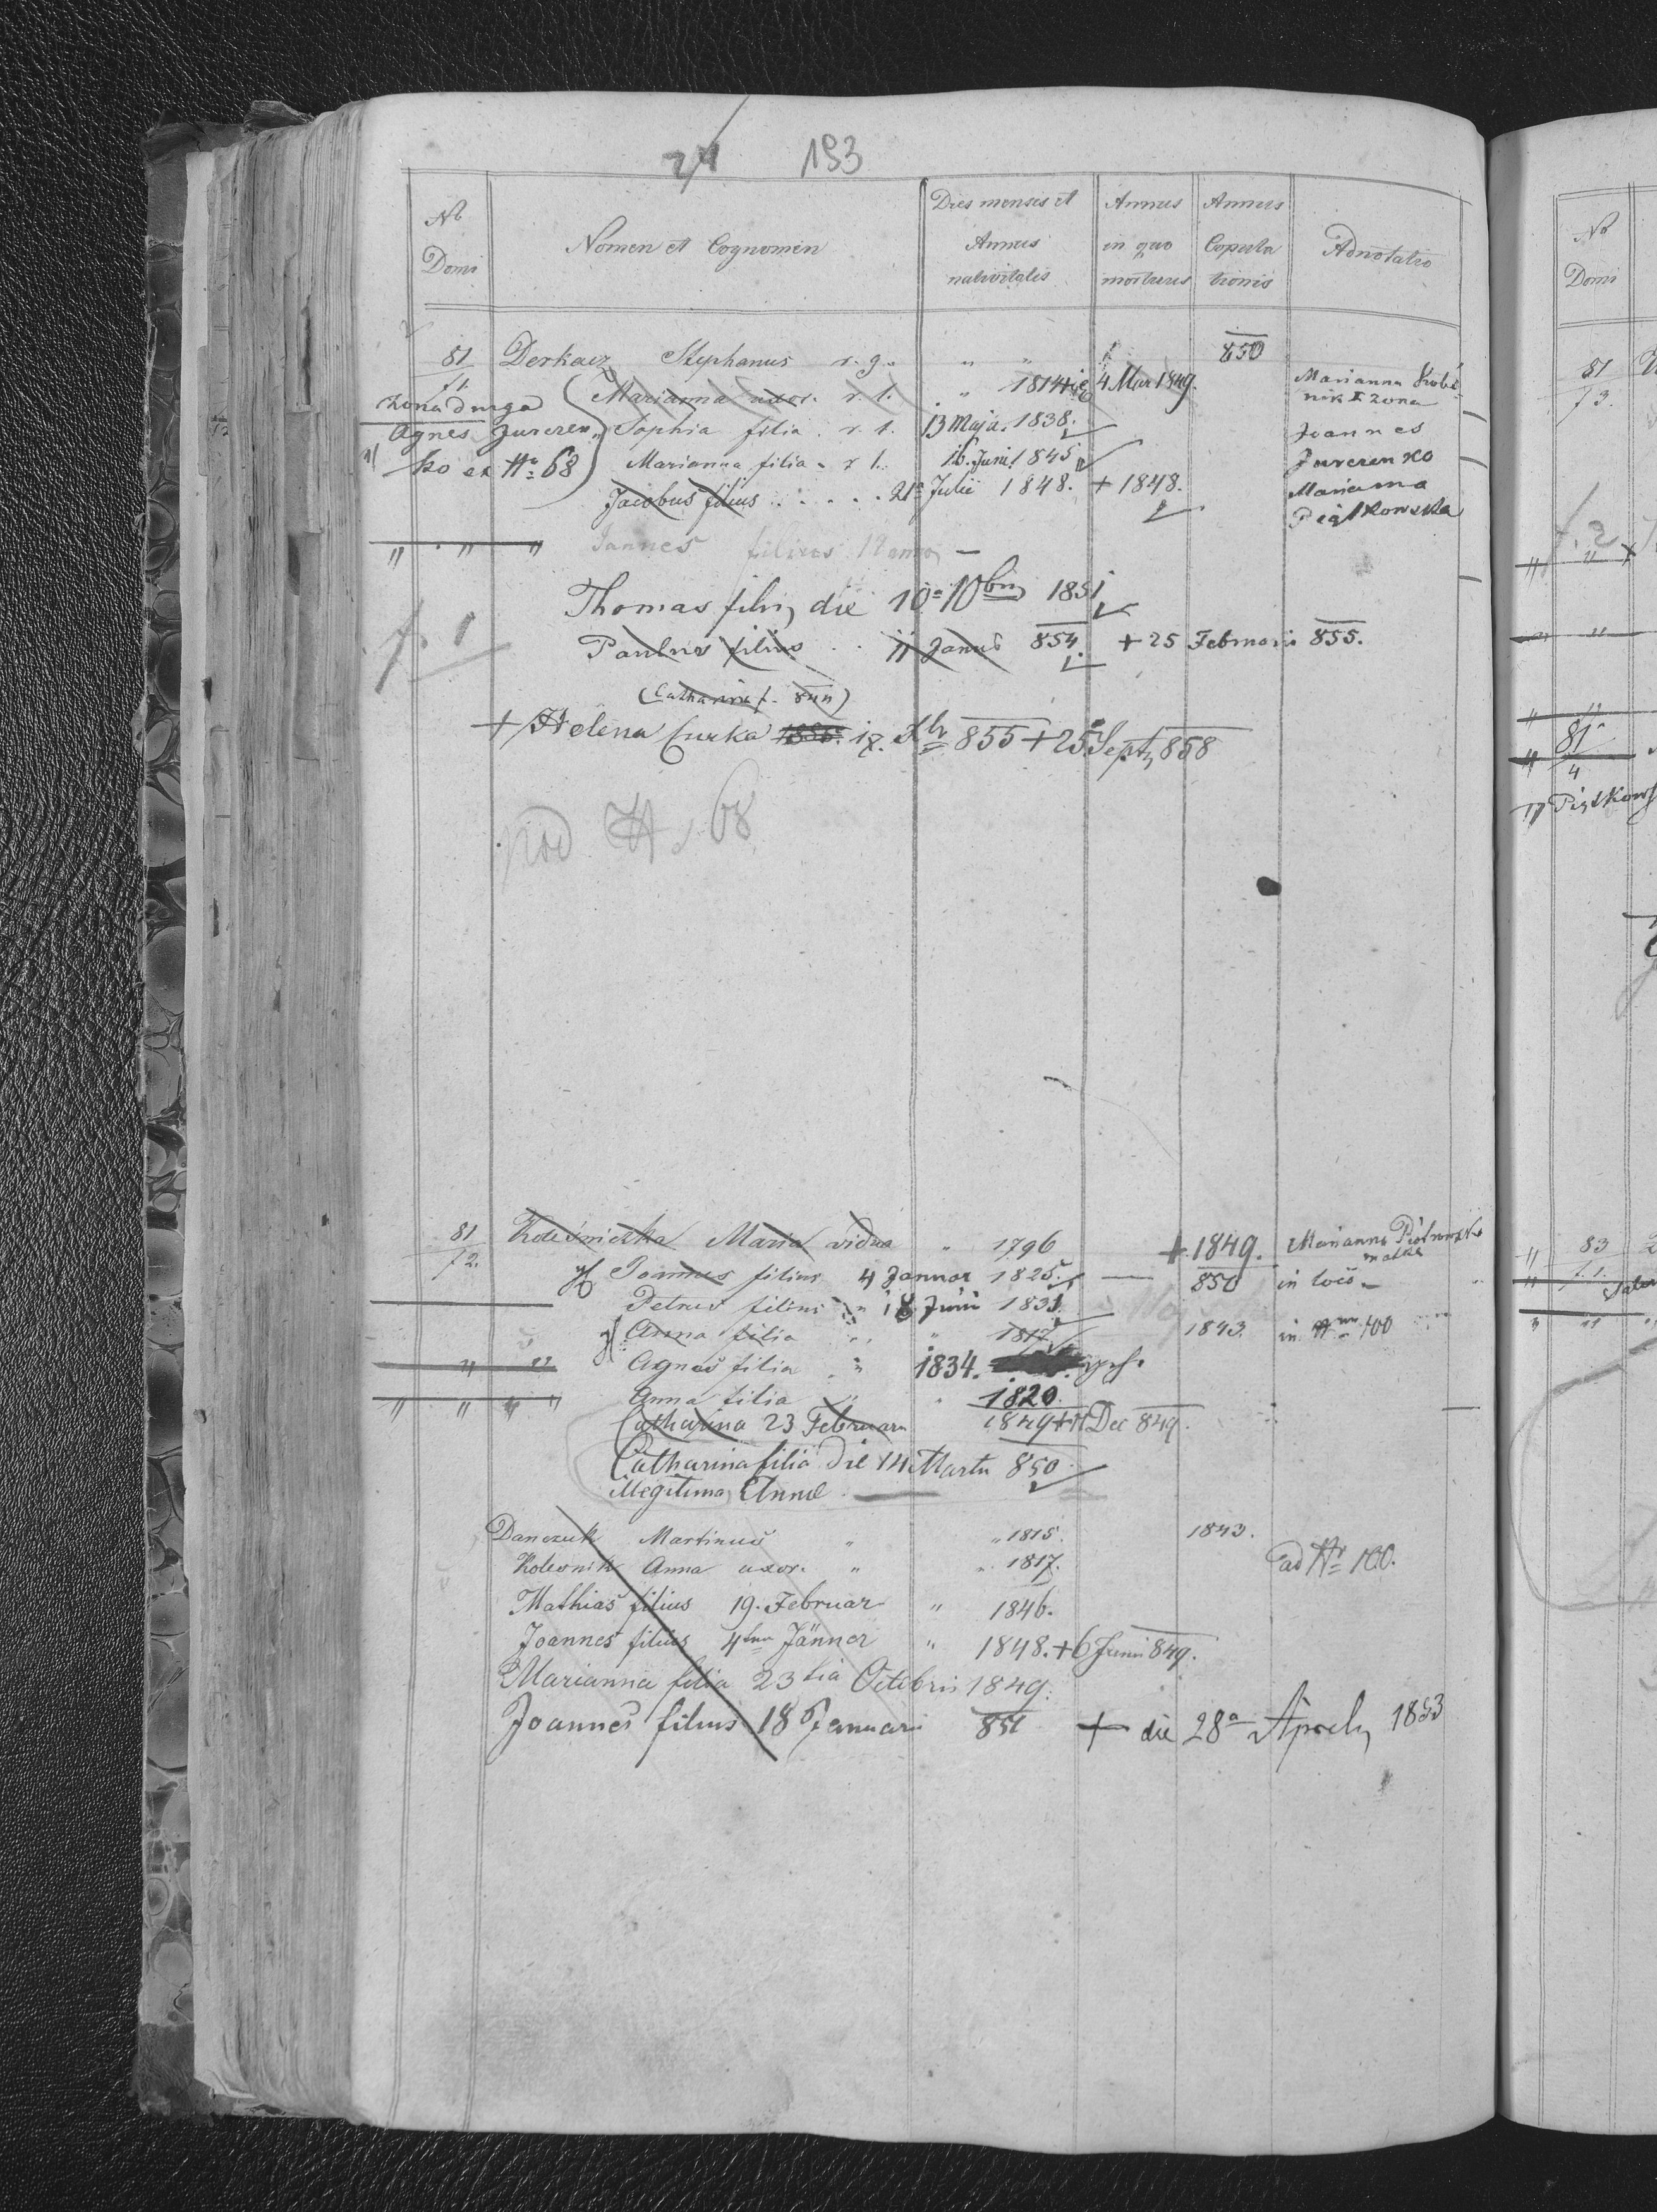 24 193
No Domi
Nomen et Cognomen
Dies mensis et Annus nativitatis
Annus in quo mortuus
Annus Copulationis
Adnotatio
81 f1. Derkacz Stephanus r. g. " " 850
Marianna uxor. r. l. " 1814 die 4 Mar 1849. Marianna Kole
nik I zona
zona druga
Agnes Jurczen
ko ex No 68
Sophia filia. r. l. 13 Maja. 1838. Joannes
Marianna filia " r l. 16. Juni 1845 Jurczenko
Jacobus filius . . . . . 21a Julii 1848. + 1848. Marianna
Piątkowska
" " " Joannes filius
Thomas fili, die 10a 10bris 1851
f. 1
Paulus filius . . 11 Januar 854. + 25 Februarii 855.
(Catharina f.)
+ Helena Curka 855 + 25 Sept, 858
pod N 68
81 f2. Koleśniczka Maria vidua " 1796 + 1849. Marianna
matka
Joannes filius 4 Januar 1825. — 850 in loco
Petrus filius " 18 Junii 1831.
Anna filia " " 1817 1843. in Nro 100
" " Agnes filia " 1834.
" " " " Anna filia " " 1820.
Catharina 23 Februarii 1849 + Dec 849.
Catharina filia die 14 Martii 850
illegitima Annae
Danczuk Martinus " " 1815. 1843.
Kolesnik Anna uxor. " " 1817. ad Nr 100.
Mathias filius 19. Februar " 1846.
Joannes filius 4ten Jänner " 1848. + 6 Junii 849.
Marianna filia 23tia Octobris 1849.
Joannes filius 18 Januarii 851 + die 28a Aprilis 1853
No Domi
81 f3.
f. 2
81 4
Piątkows
83 f.1.